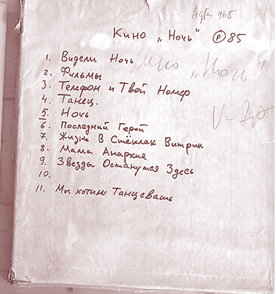 Agfa 468
Кино „Ночь" Ⓟ 85
1. Видели Ночь
2. Фильмы
3. Телефон и Твой Номер
4. Танец.
5. Ночь
6. Последний Герой
7. Жизнь В Стёклах Витрин
8. Мама Анархия
9. Звезды Останутся Здесь
10.
11. Мы хотим Танцевать
Кино „Ночь"